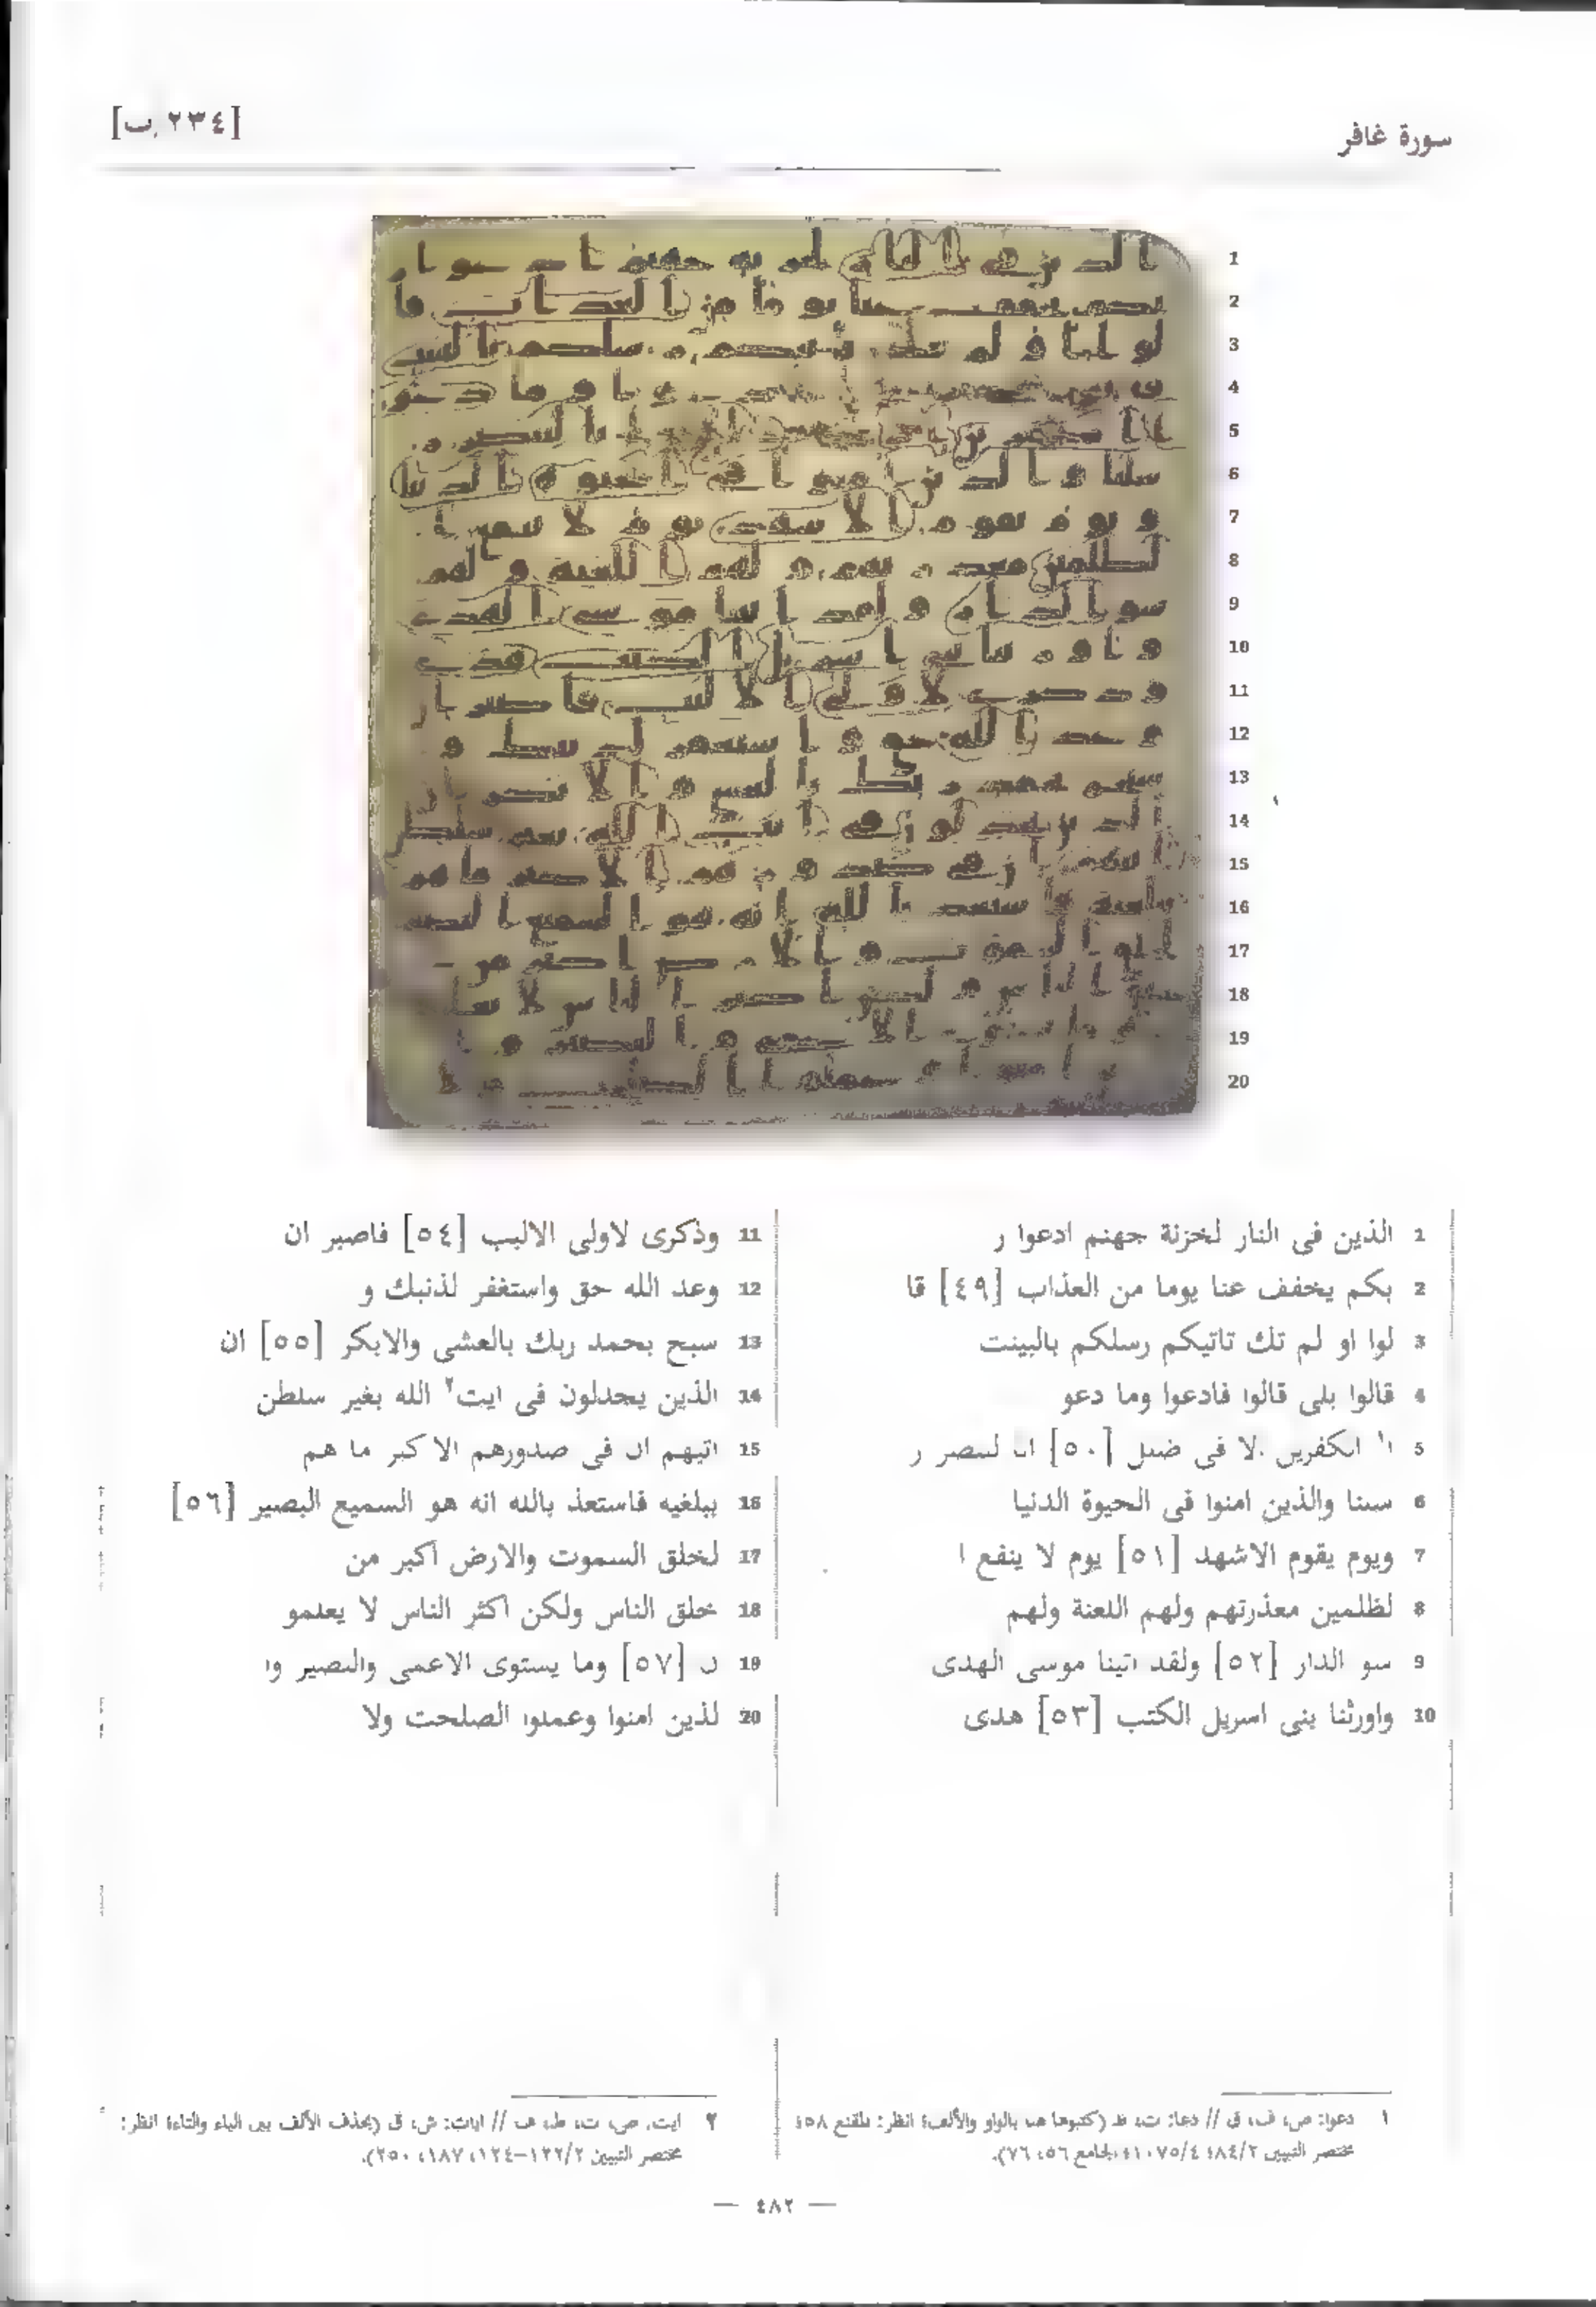 سورة غافر
[٢٣٤.ب]
1
2
3
4
5
6
7
8
9
10
11
12
13
14
15
16
17
18
19
20
1 الذين فى النار لخزنة جهنم ادعوا ر
2 بكم يخفف عنا يوما من العذاب [٤٩] قا
3 لوا او لم تك تاتيكم رسلكم بالبينت
4 قالوا بلى قالوا فادعوا وما دعو
5 ا١ الكفرين الا فى ضلل [٥٠] انا لننصر ر
6 سلنا والذين امنوا فى الحيوة الدنيا
7 ويوم يقوم الاشهد [٥١] يوم لا ينفع ا
8 لظلمين معذرتهم ولهم اللعنة ولهم
9 سو الدار [٥٢] ولقد اتينا موسى الهدى
10 واورثنا بنى اسريل الكتب [٥٣] هدى
11 وذكرى لاولى الالبب [٥٤] فاصبر ان
12 وعد الله حق واستغفر لذنبك و
13 سبح بحمد ربك بالعشى والابكر [٥٥] ان
14 الذين يجدلون فى ايت٢ الله بغير سلطن
15 اتيهم ان فى صدورهم الا كبر ما هم
16 ببلغيه فاستعذ بالله انه هو السميع البصير [٥٦]
17 لخلق السموت والارض اكبر من
18 خلق الناس ولكن اكثر الناس لا يعلمو
19 ن [٥٧] وما يستوى الاعمى والبصير وا
20 لذين امنوا وعملوا الصلحت ولا
١ دعوا: ص، ف، ق // دعا: ت، ط (كتبوها هنا بالواو والألف؛ انظر: المقنع ٥٨؛
مختصر التبيين ٨٤/٢؛ ١٠٧٥/٤؛ الجامع ٥٦، ٧٦).
٢ ايت: ص، ت، ط، ف // ايات: ش، ق (بحذف الألف بين الياء والتاء؛ انظر:
مختصر التبيين ١٢٢/٢–١٢٤، ١٨٧، ٢٥٠).
— ٤٨٢ —